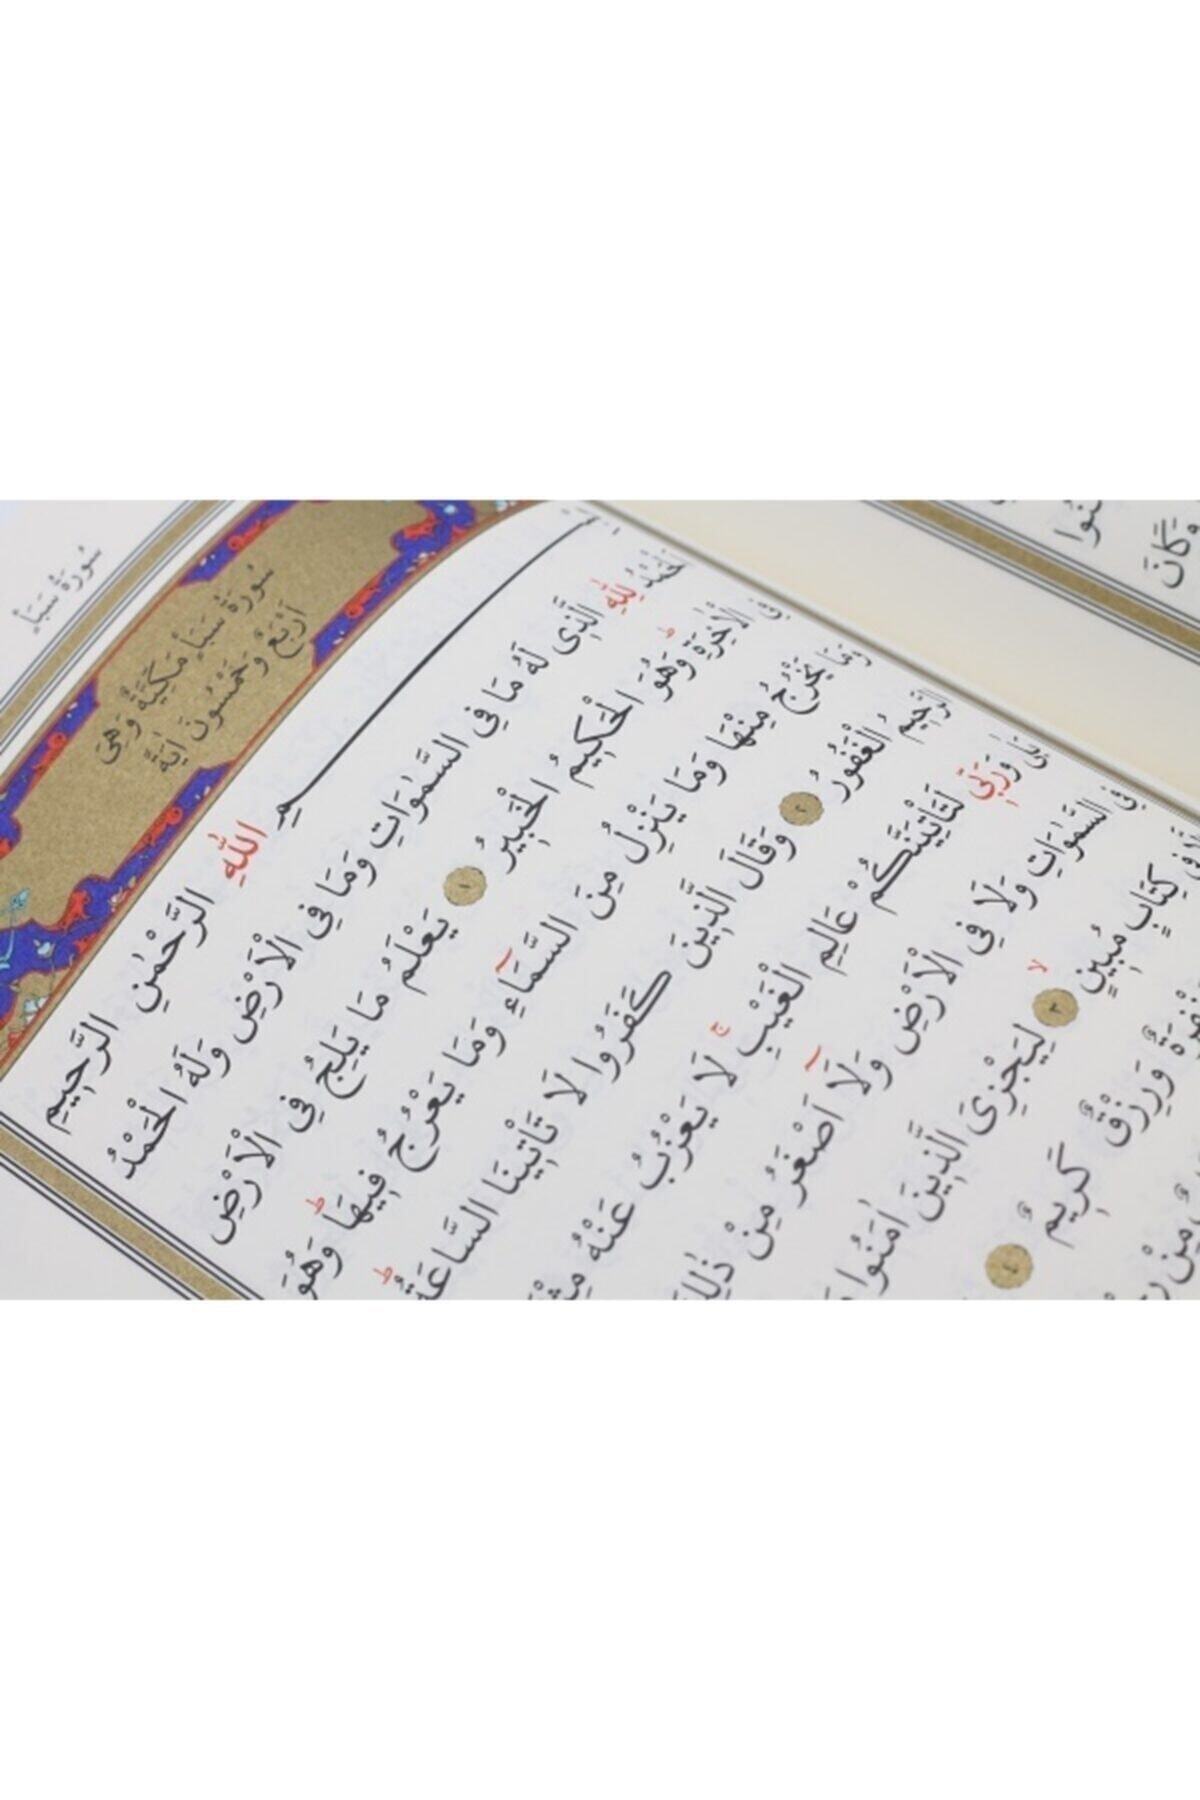 سُورَةُ سَبَأٍ
سُورَةُ سَبَأٍ مَكِّيَّةٌ وَهِيَ
اَرْبَعٌ وَخَمْسُونَ اٰيَةً
بِسْمِ اللّٰهِ الرَّحْمٰنِ الرَّحِيمِ
اَلْحَمْدُ لِلّٰهِ الَّذِى لَهُ مَا فِى السَّمٰوَاتِ وَمَا فِى الْاَرْضِ وَلَهُ الْحَمْدُ
فِى الْاٰخِرَةِ ط وَهُوَ الْحَكِيمُ الْخَبِيرُ ١ يَعْلَمُ مَا يَلِجُ فِى الْاَرْضِ
وَمَا يَخْرُجُ مِنْهَا وَمَا يَنْزِلُ مِنَ السَّمَٓاءِ وَمَا يَعْرُجُ فِيهَا ط وَهُوَ
الرَّحِيمُ الْغَفُورُ ٢ وَقَالَ الَّذِينَ كَفَرُوا لَا تَأْتِينَا السَّاعَةُ ط
بَلٰى وَرَبِّى لَتَأْتِيَنَّكُمْ عَالِمِ الْغَيْبِ ج لَا يَعْزُبُ عَنْهُ
فِى السَّمٰوَاتِ وَلَا فِى الْاَرْضِ وَلَٓا اَصْغَرُ مِنْ ذٰلِكَ
كِتَابٍ مُبِينٍ لا ٣ لِيَجْزِىَ الَّذِينَ اٰمَنُوا
وَرِزْقٌ كَرِيمٌ ٤
مِنْ
وَكَانَ